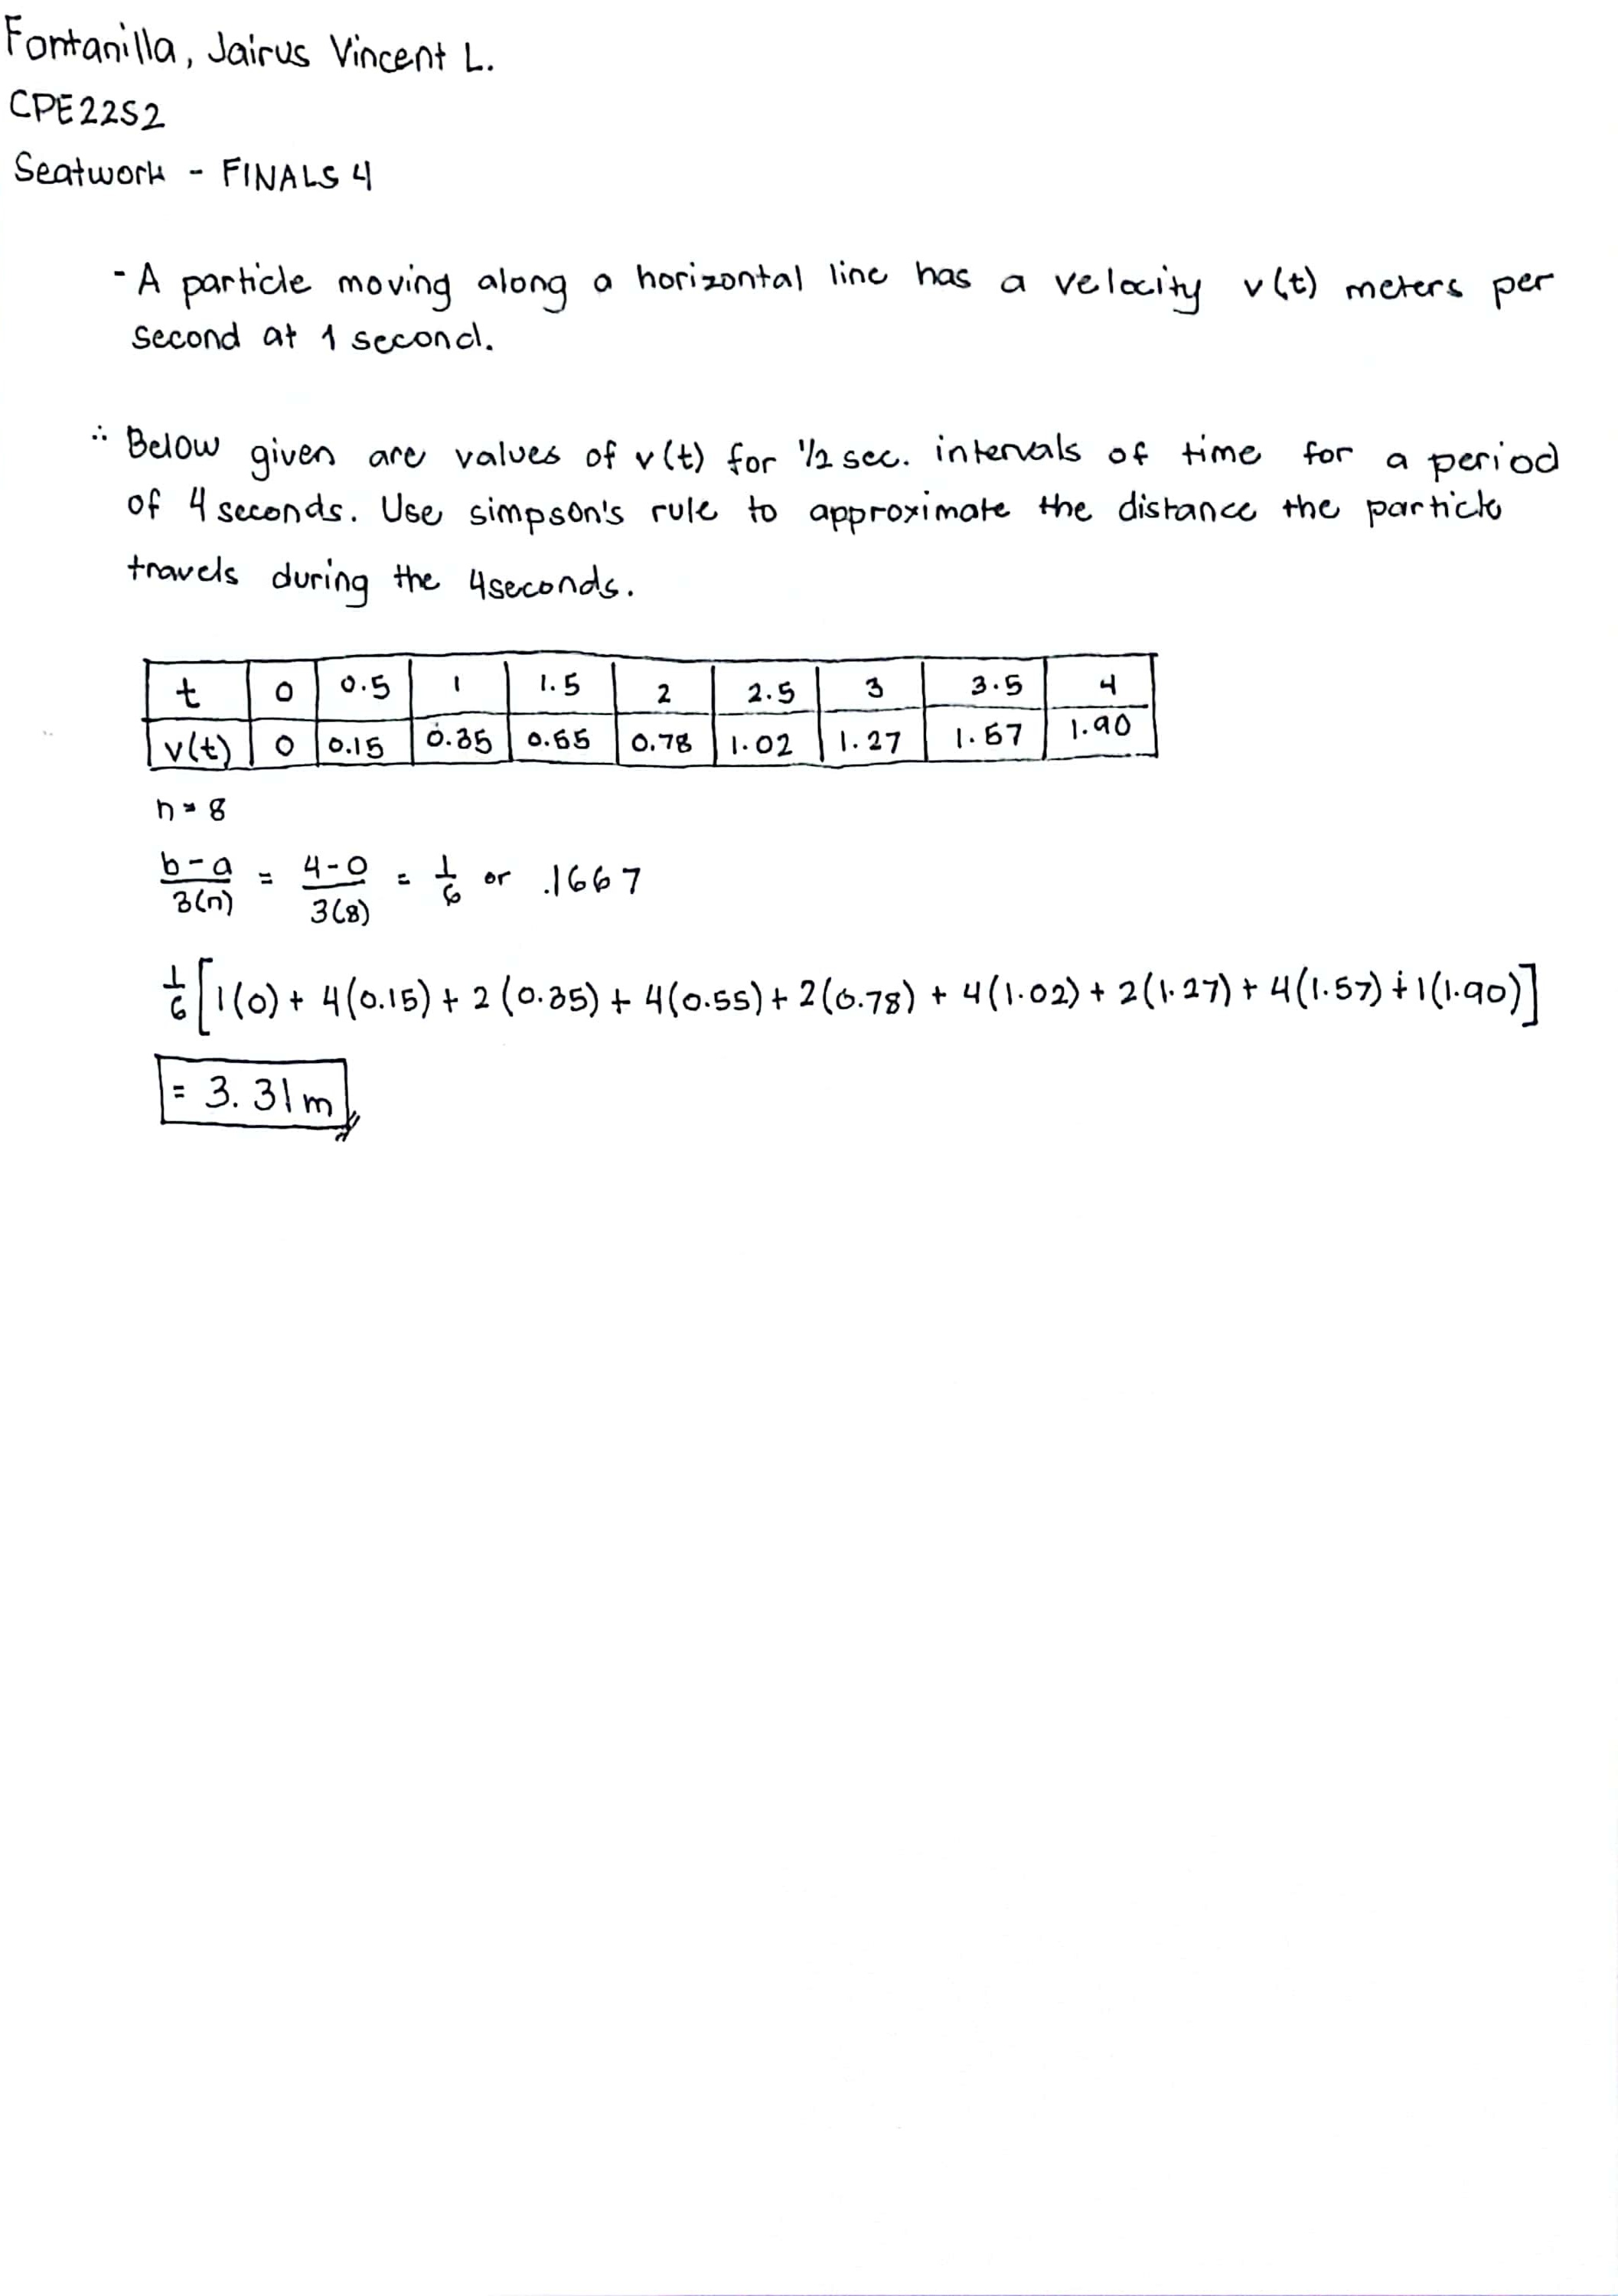 Fontanilla, Jairus Vincent L.
CPE22S2
Seatwork - FINALS 4
- A particle moving along a horizontal line has a velocity v(t) meters per
second at 1 second.
∴ Below given are values of v(t) for 1/2 sec. intervals of time for a period
of 4 seconds. Use simpson's rule to approximate the distance the particle
travels during the 4seconds.
t 0 0.5 1 1.5 2 2.5 3 3.5 4
v(t) 0 0.15 0.35 0.55 0.78 1.02 1.27 1.57 1.90
n = 8
b-a / 3(n) = 4-0 / 3(8) = 1/6 or .1667
1/6 [1(0) + 4(0.15) + 2(0.35) + 4(0.55) + 2(0.78) + 4(1.02) + 2(1.27) + 4(1.57) + 1(1.90)]
= 3.31m